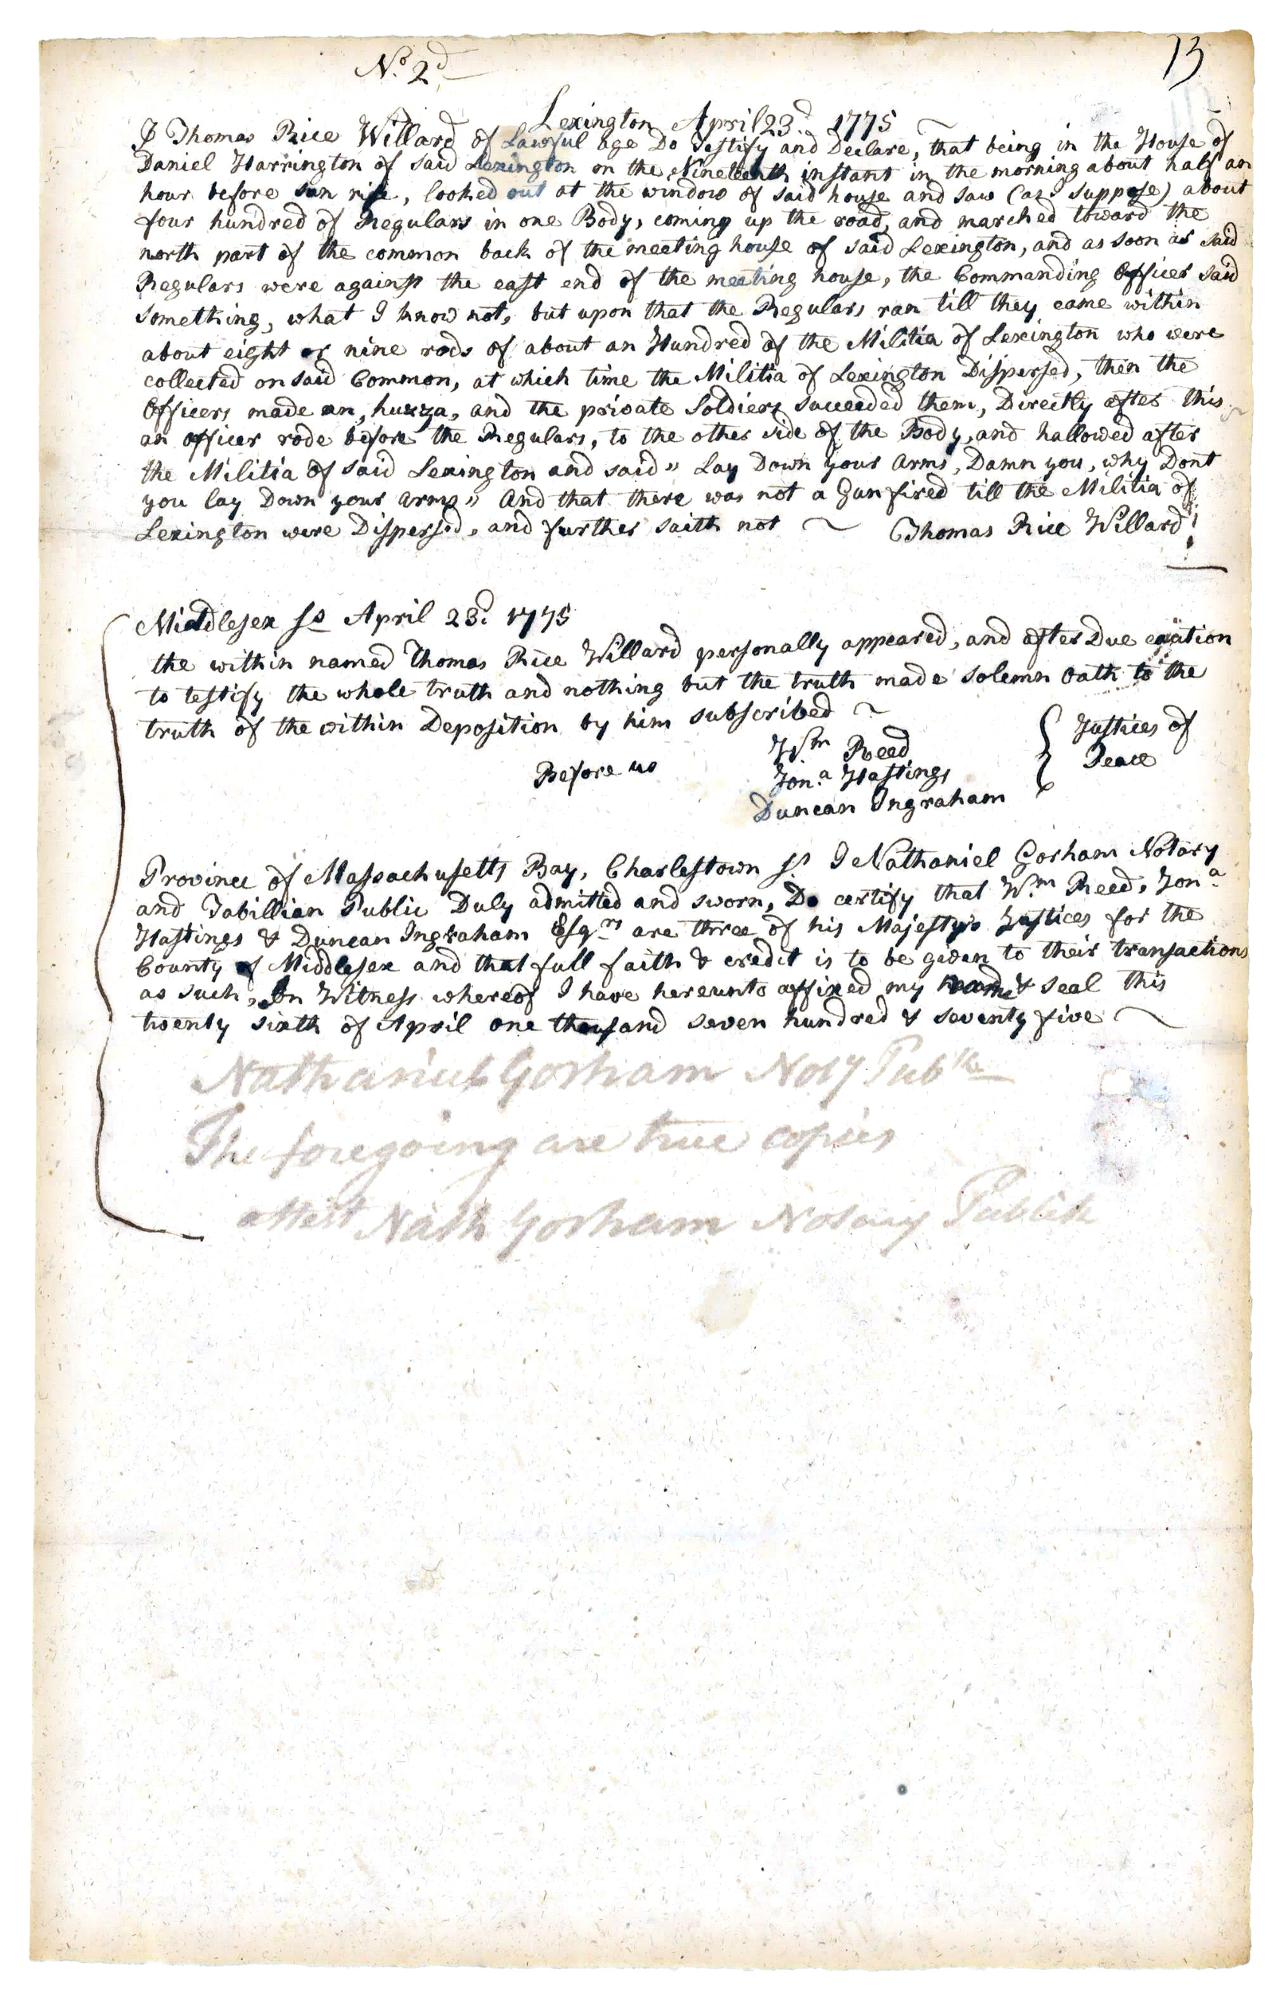 No 2d
13
Lexington April 23d 1775
I Thomas Rice Willard of Lawful age Do Testify and Declare, that being in the House of
Daniel Harrington of said Lexington on the Nineteenth instant in the morning about half an
hour before sun rise, looked out at the window of said house and saw (as I suppose) about
four hundred of Regulars in one Body, coming up the road, and marched toward the
north part of the common back of the meeting house of said Lexington, and as soon as said
Regulars were against the east end of the meeting house, the Commanding Officer said
something, what I know not, but upon that the Regulars ran till they came within
about eight or nine rods of about an Hundred of the Militia of Lexington who were
collected on said Common, at which time the Militia of Lexington Dispersed, then the
Officers made an, huzza, and the private Soldiers succeeded them, Directly after this
an officer rode before the Regulars, to the other side of the Body, and hallowed after
the Militia of said Lexington and said" Lay Down your Arms, Damn you, why Dont
you lay Down your arms" And that there was not a Gun fired till the Militia of
Lexington were Dispersed, and further saith not Thomas Rice Willard
Middlesex ss April 23d 1775
the within named Thomas Rice Willard personally appeared, and after Due cation
to testify the whole truth and nothing but the truth made solemn oath to the
truth of the within Deposition by him subscribed
Before us
Wm Reed
Jona Hastings
Duncan Ingraham
Justices of
Peace
Province of Massachusetts Bay, Charlestown ss I Nathaniel Gorham Notary
and Tabillian Public Duly admitted and sworn, Do certify that Wm Reed, Jona
Hastings & Duncan Ingraham Esqrs are three of his Majesty's Justices for the
County of Middlesex and that full faith & credit is to be given to their transactions
as such, In Witness whereof I have hereunto affixed my name & seal this
twenty sixth of April one thousand seven hundred & seventy five
Nathaniel Gorham Noty Publk
The foregoing are true copies
attest Nath Gorham Notary Publick